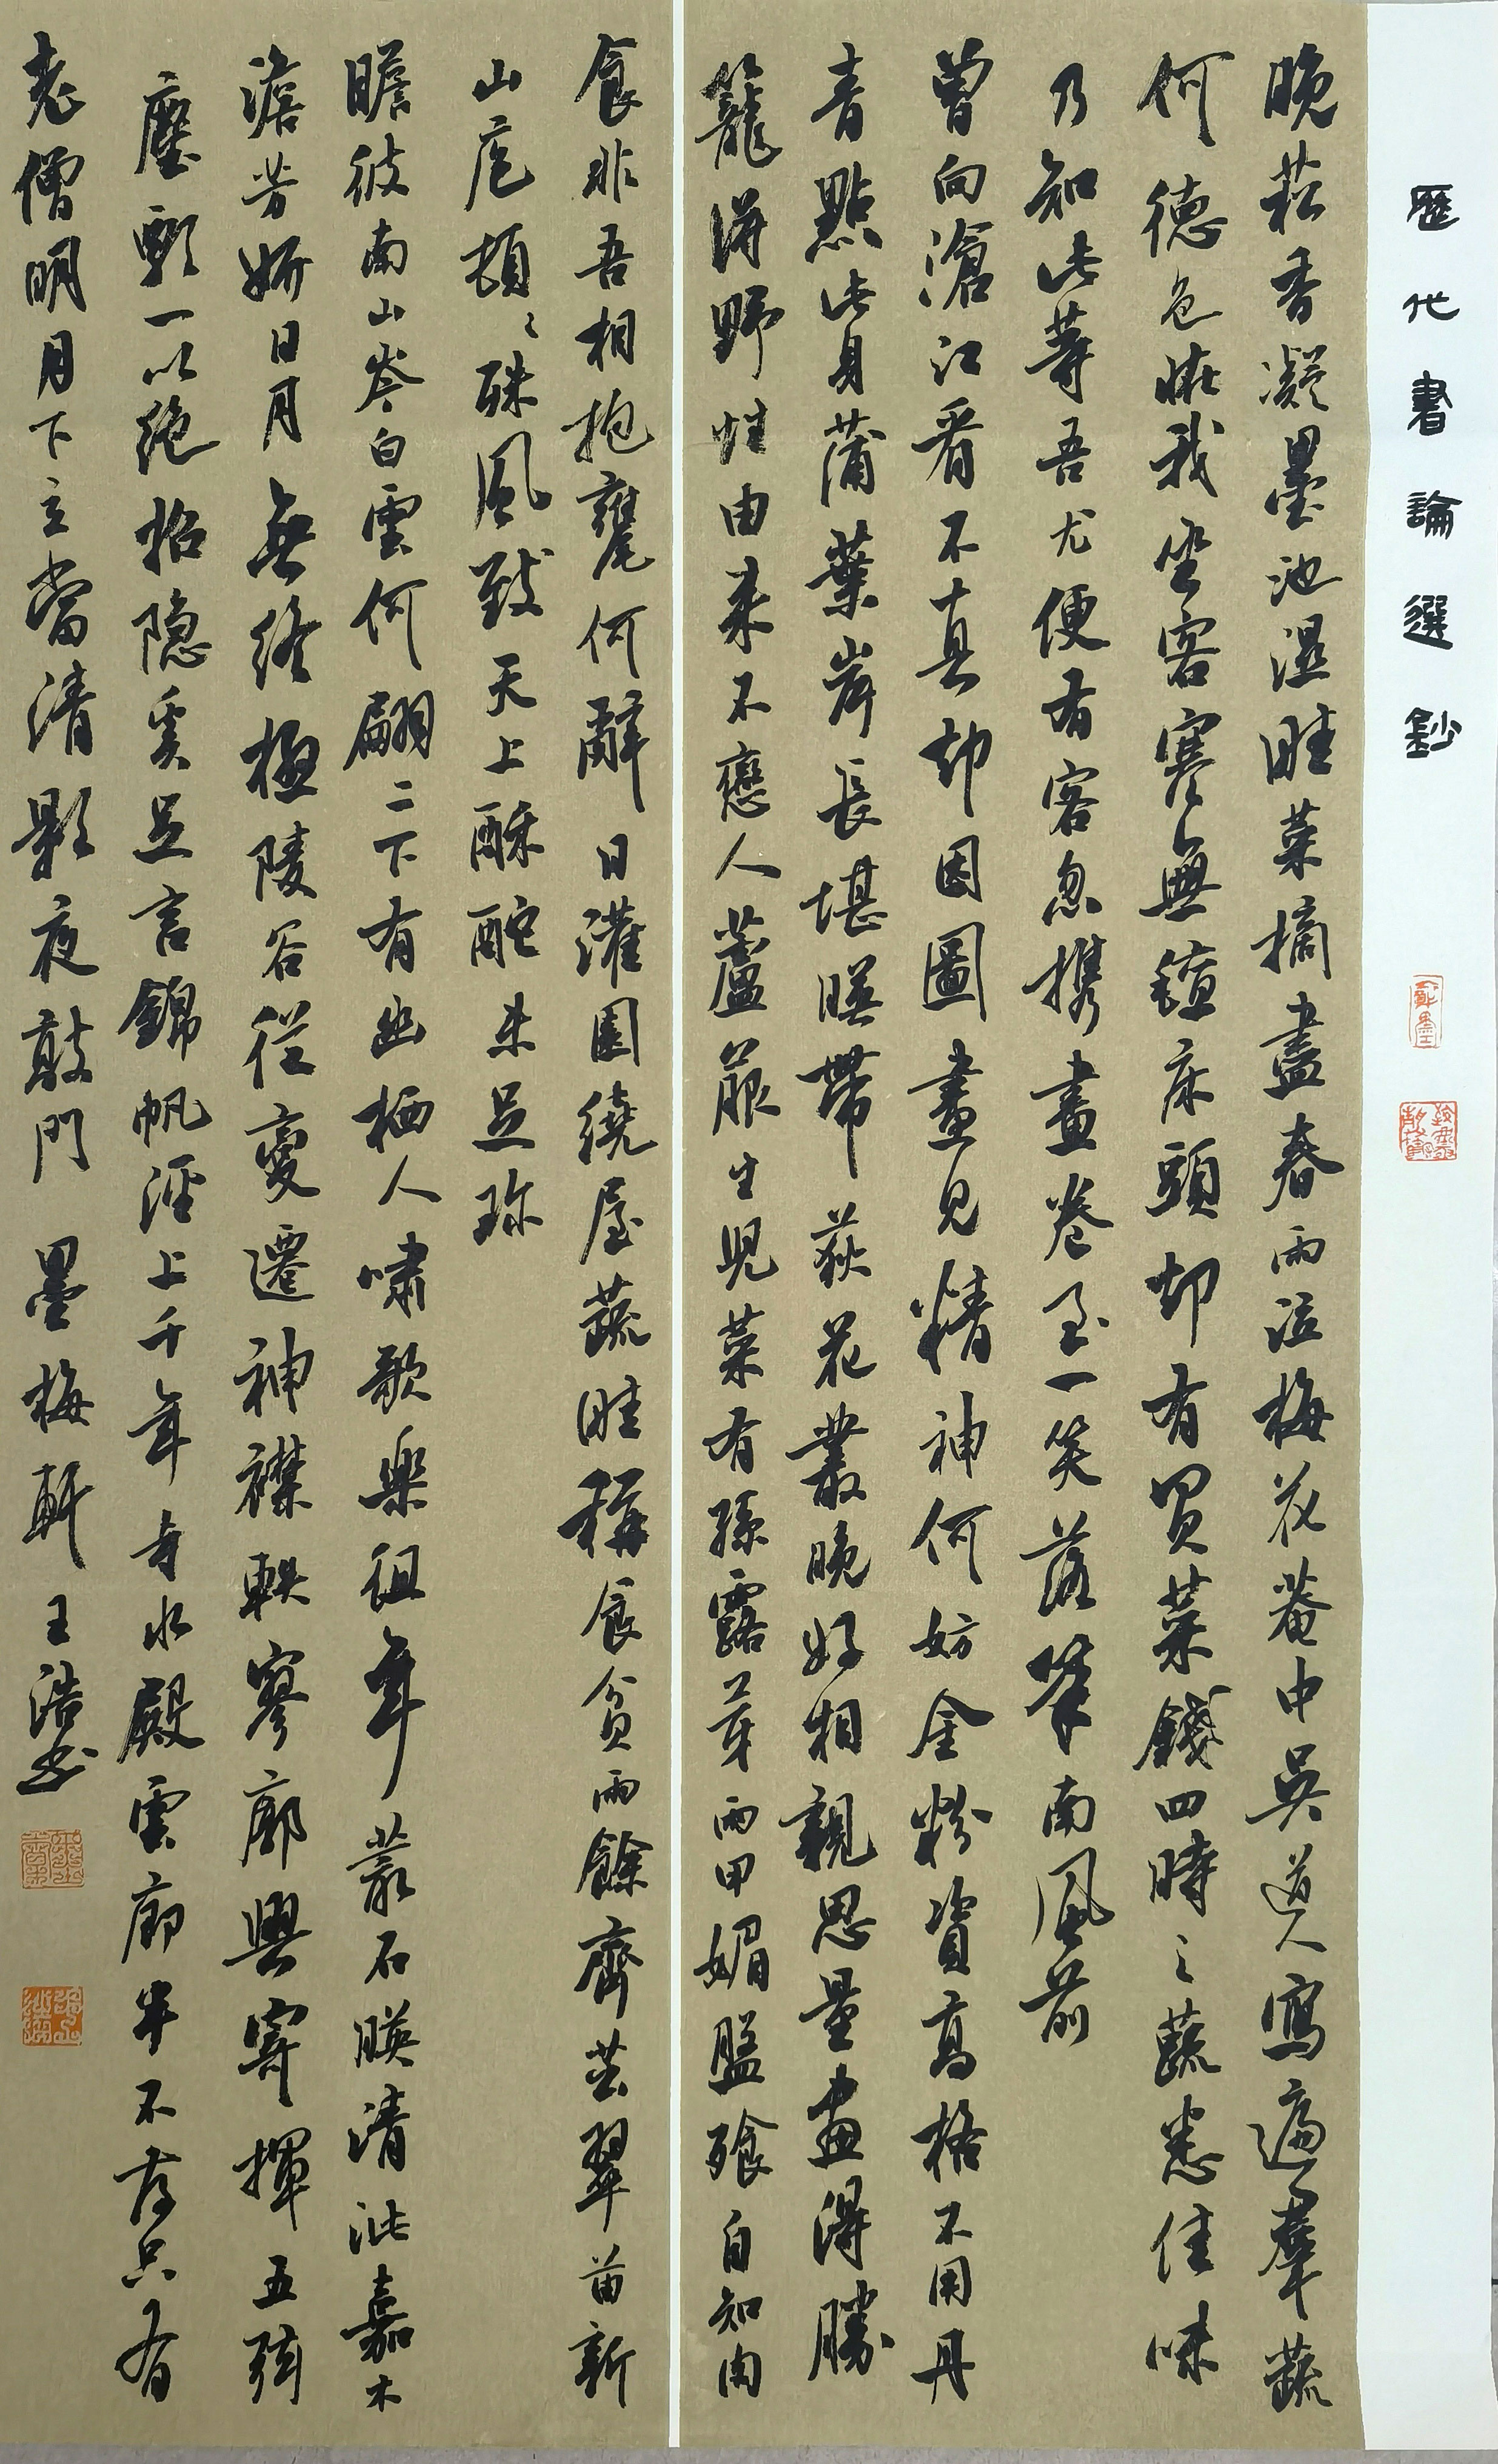 歷代書論選鈔
晚菘香凝墨池濕畦菜摘盡春雨泣梅花菴中吳道人寫遍群蔬
何德色嗟我坐客寒無氊床頭却有買菜錢四時之蔬悉佳味
乃知此等吾尤便有客忽携畫卷至一笑落筆南風前
曾向滄江看不真却因圖畫見精神何妨金粉資高格不用丹
青點此身蒲葉岸長堪映帶荻花叢晚好相親思量畫得勝
籠得野性由來不戀人蘆菔生兒菜有孫露芽雨甲媚盤飧自知肉
食非吾相抱甕何辭日灌園繞屋蔬畦稱食貧雨餘齊茁翠苗新
山庖頓頓殊風致天上酥酡未足珍
瞻彼南山岑白雲何翩二下有幽栖人嘯歌樂徂年叢石映清泚嘉木
澹芳妍日月無終極陵谷從變遷神襟軼寥廓興寄揮五弦
塵影一以絕招隱奚足言錦帆涇上千年寺水殿雲廊半不存只有
老僧明月下立當清影夜敲門 墨梅軒王浩書